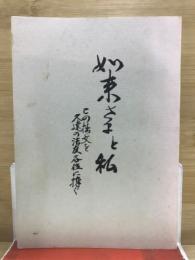 如来さまと私
この拙文を
久遠の法友各位に捧ぐ